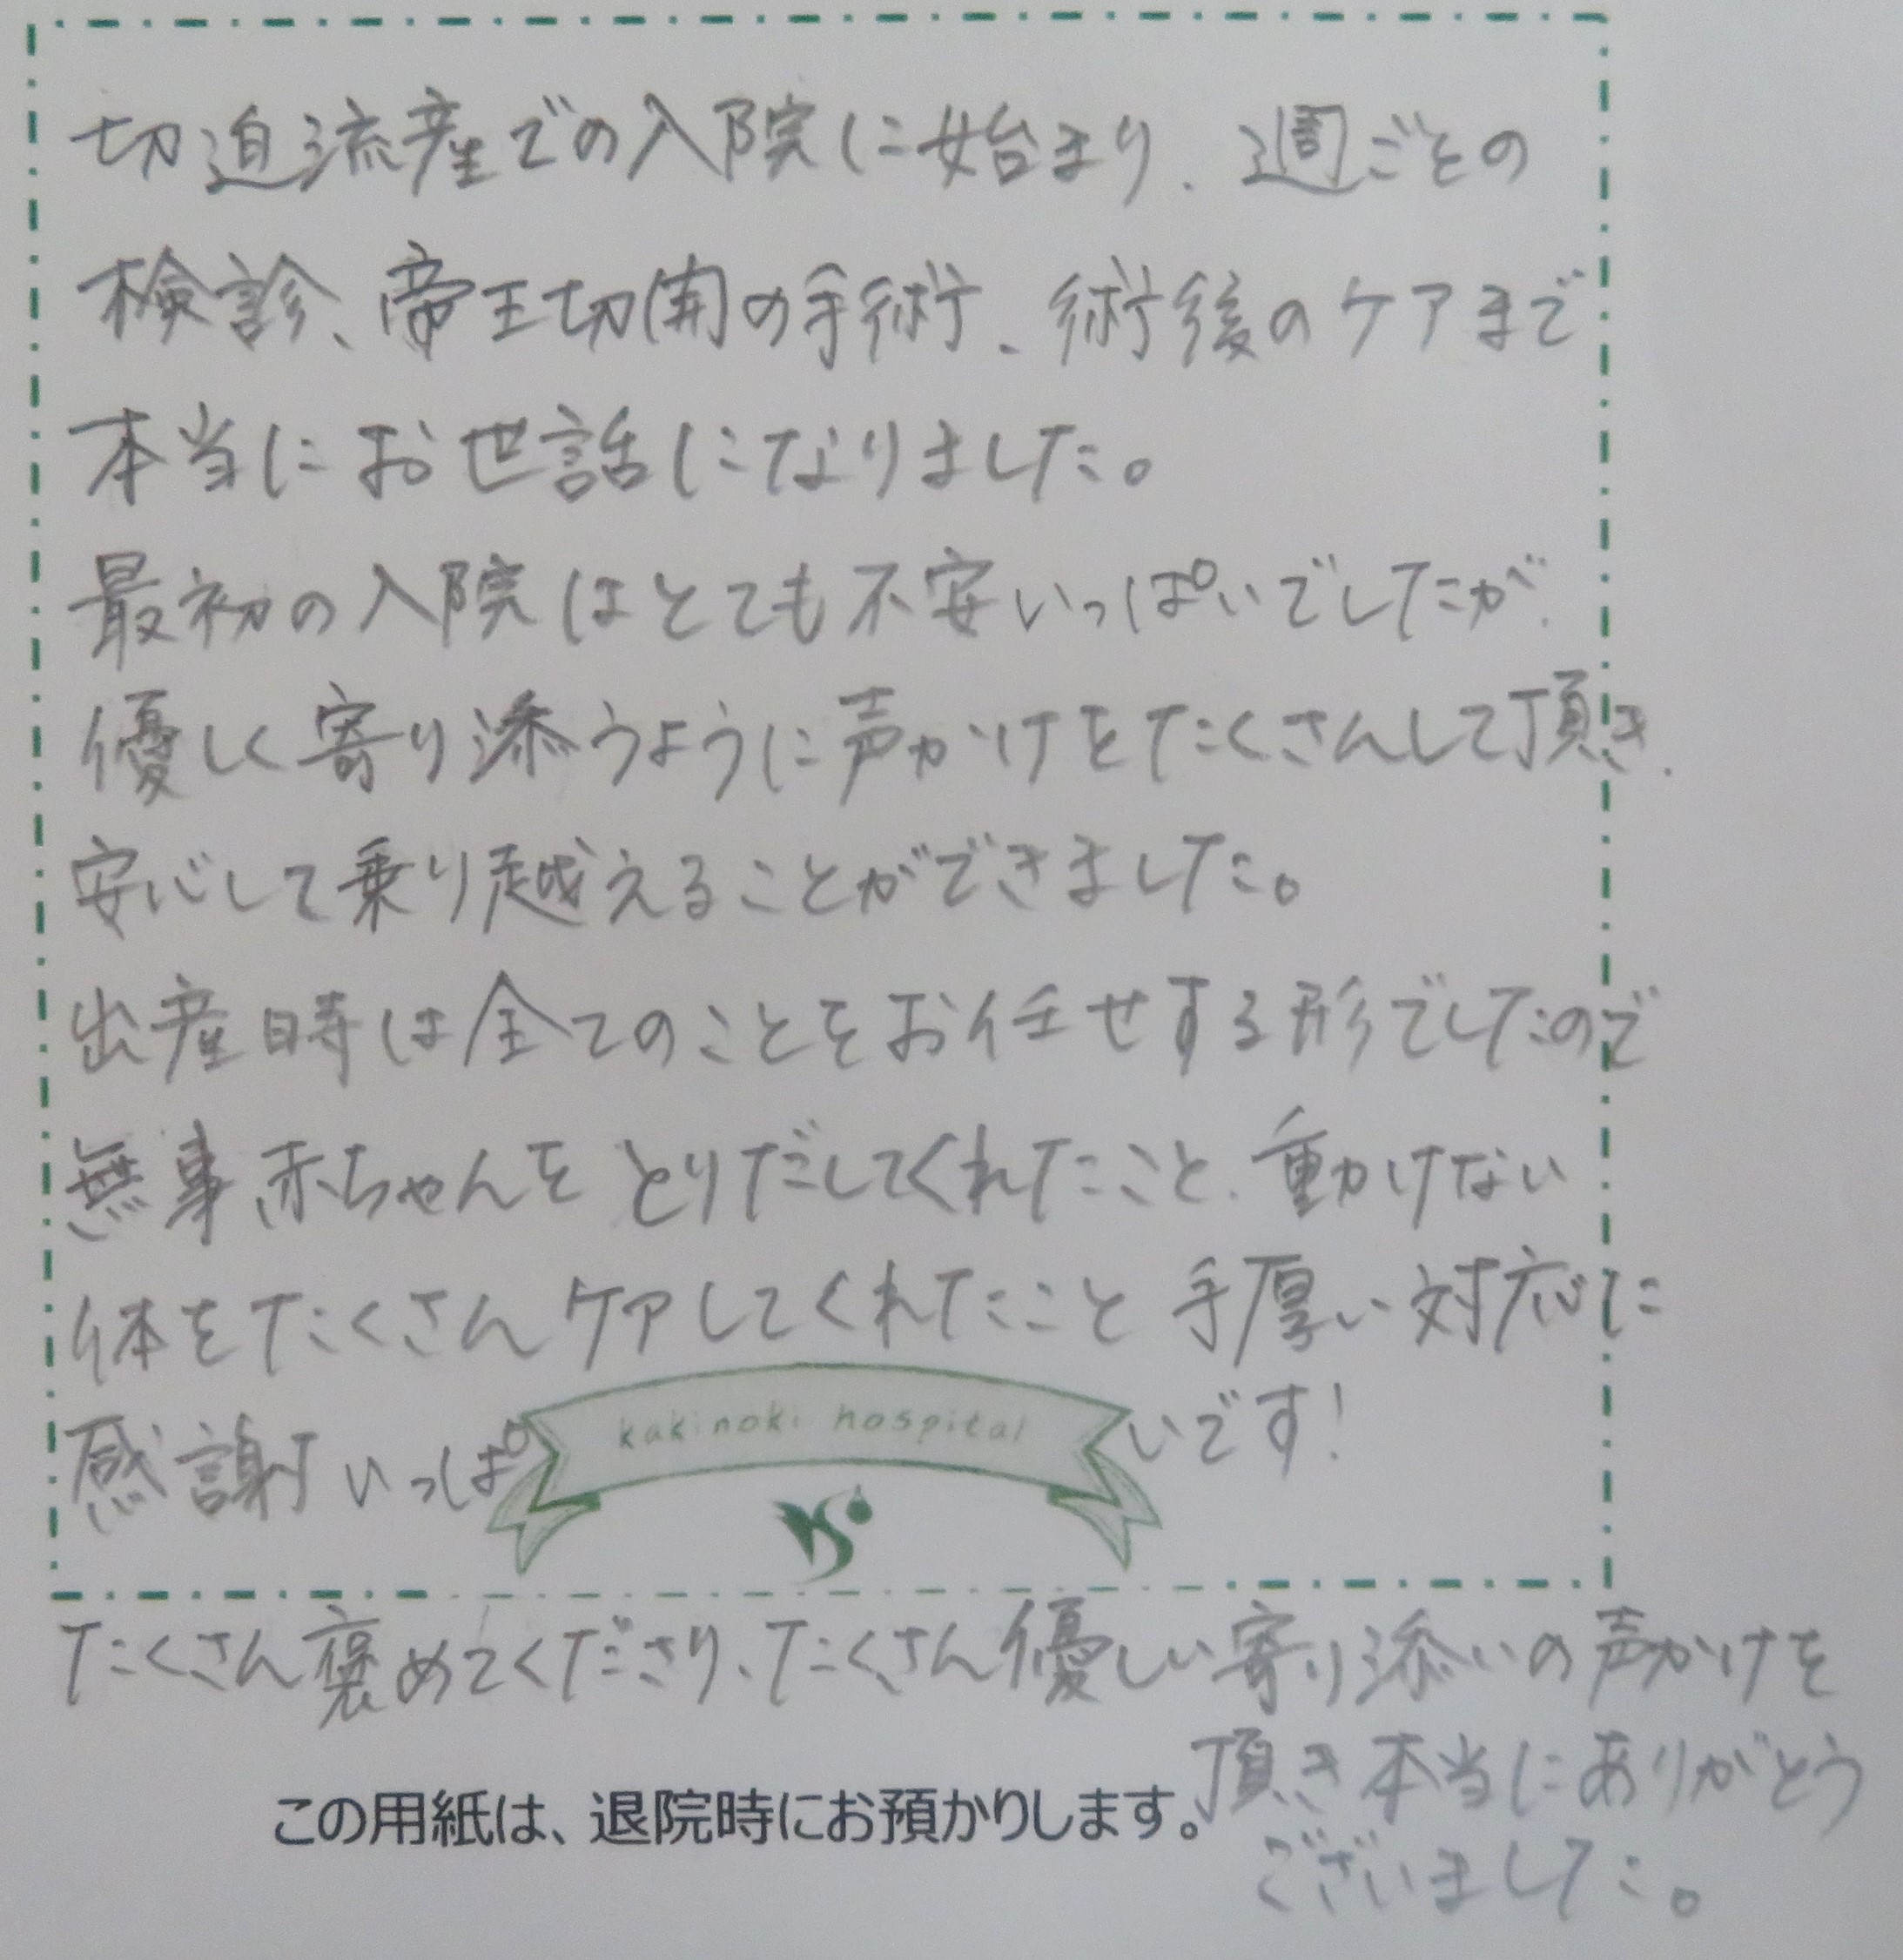 切迫流産での入院に始まり、週ごとの
検診、帝王切開の手術、術後のケアまで
本当にお世話になりました。
最初の入院はとても不安いっぱいでしたが、
優しく寄り添うように声かけをたくさんして頂き、
安心して乗り越えることができました。
出産時は全てのことをお任せする形でしたので
無事赤ちゃんをとりだしてくれたこと、動かけない
体をたくさんケアしてくれたこと手厚い対応に
感謝いっぱいです!
kakinoki hospital
たくさん褒めてくださり、たくさん優しい寄り添いの声かけを
頂き本当にありがとう
ございました。
この用紙は、退院時にお預かりします。